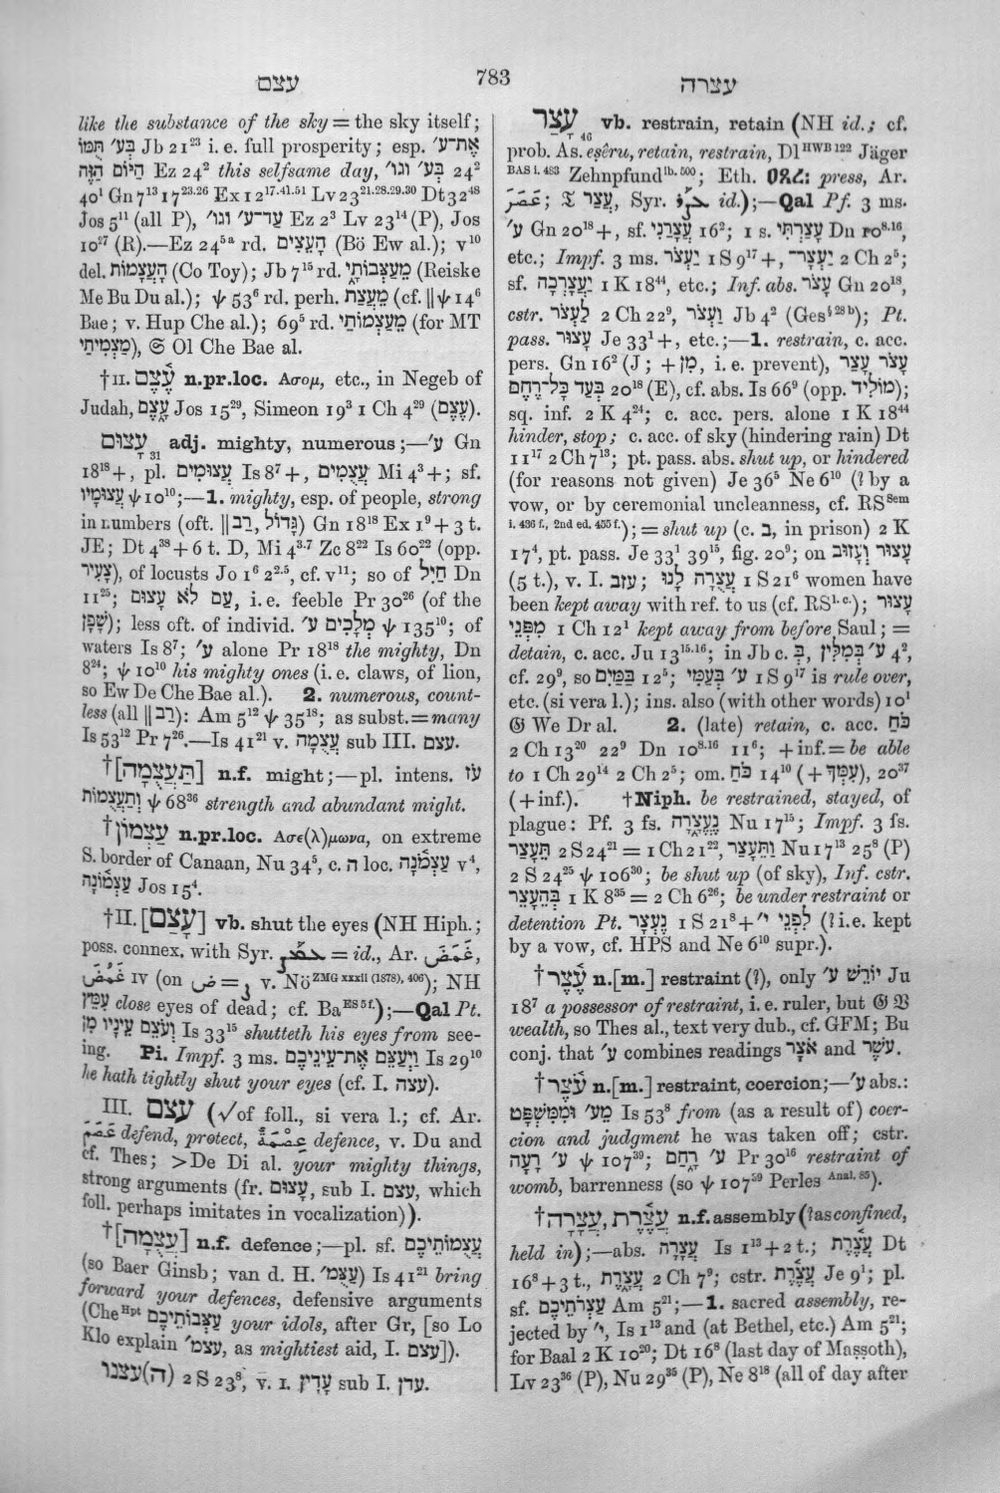 עצם 783 עצרה
like the substance of the sky = the sky itself;
בְּע׳ תֻּמּוֹ Jb 21²³ i. e. full prosperity; esp. אֶת־ע׳
הַיּוֹם הַזֶּה Ez 24² this selfsame day, בְּע׳ וגו׳ 24²
40¹ Gn 7¹³ 17²³·²⁶ Ex 12¹⁷·⁴¹·⁵¹ Lv 23²¹·²⁸·²⁹·³⁰ Dt 32⁴⁸
Jos 5¹¹ (all P), עַד־ע׳ וגו׳ Ez 2³ Lv 23¹⁴ (P), Jos
10²⁷ (R).—Ez 24⁵ᵃ rd. הָעֵצִים (Bö Ew al.); v¹⁰
del. הָעֲצָמוֹת (Co Toy); Jb 7¹⁵ rd. מֵעַצְּבוֹתָי (Reiske
Me Bu Du al.); ψ 53⁶ rd. perh. מֵעֲצַת (cf. ‖ ψ 14⁶
Bae; v. Hup Che al.); 69⁵ rd. מֵעַצְמוֹתַי (for MT
מַצְמִיתַי), 𝔖 Ol Che Bae al.
†II. עֶצֶם n.pr.loc. Ασομ, etc., in Negeb of
Judah, עָצֶם Jos 15²⁹, Simeon 19³ 1 Ch 4²⁹ (עֶצֶם).
עָצוּם 31 adj. mighty, numerous;—ע׳ Gn
18¹⁸+, pl. עֲצוּמִים Is 8⁷+, עֲצֻמִים Mi 4³+; sf.
עֲצוּמָיו ψ 10¹⁰;—1. mighty, esp. of people, strong
in numbers (oft. ‖ רַב, גָּדוֹל) Gn 18¹⁸ Ex 1⁹ + 3 t.
JE; Dt 4³⁸ + 6 t. D, Mi 4³·⁷ Zc 8²² Is 60²² (opp.
צָעִיר), of locusts Jo 1⁶ 2²·⁵, cf. v¹¹; so of חַיִל Dn
11²⁵; עַם לֹא עָצוּם, i. e. feeble Pr 30²⁶ (of the
שָׁפָן); less oft. of individ. מְלָכִים ע׳ ψ 135¹⁰; of
waters Is 8⁷; ע׳ alone Pr 18¹⁸ the mighty, Dn
8²⁴; ψ 10¹⁰ his mighty ones (i. e. claws, of lion,
so Ew De Che Bae al.). 2. numerous, count-
less (all ‖ רַב): Am 5¹² ψ 35¹⁸; as subst. = many
Is 53¹² Pr 7²⁶.—Is 41²¹ v. עֲצֻמָה sub III. עצם.
†[תַּעֲצֻמָה] n.f. might;—pl. intens. עֹז
וְתַעֲצֻמוֹת ψ 68³⁶ strength and abundant might.
†עַצְמוֹן n.pr.loc. Ασε(λ)μωνα, on extreme
S. border of Canaan, Nu 34⁵, c. ה loc. עַצְמֹנָה v⁴,
עַצְמוֹנָה Jos 15⁴.
†II. [עָצַם] vb. shut the eyes (NH Hiph.;
poss. connex. with Syr. = id., Ar. غَمَضَ,
غَمَّضَ IV (on ض = v. Nö ZMG xxxii (1878), 406); NH
עִמֵּץ close eyes of dead; cf. Ba ES 5 f.);—Qal Pt.
וְעֹצֵם עֵינָיו מִן Is 33¹⁵ shutteth his eyes from see-
ing. Pi. Impf. 3 ms. וַיְעַצֵּם אֶת־עֵינֵיכֶם Is 29¹⁰
he hath tightly shut your eyes (cf. I. עצה).
III. עצם (√ of foll., si vera l.; cf. Ar.
عَصَمَ defend, protect, عِصْمَةٌ defence, v. Du and
cf. Thes; > De Di al. your mighty things,
strong arguments (fr. עָצוּם, sub I. עצם, which
foll. perhaps imitates in vocalization)).
†[עֲצֻמָה] n.f. defence;—pl. sf. עֲצֻמוֹתֵיכֶם
(so Baer Ginsb; van d. H. עֲצְמ׳) Is 41²¹ bring
forward your defences, defensive arguments
(Che Hpt עֲצַבּוֹתֵיכֶם your idols, after Gr, [so Lo
Klo explain עצמ׳, as mightiest aid, I. עצם]).
(ה)עצנו 2 S 23⁸, v. I. עָדִין sub I. עדן.
עָצַר 46 vb. restrain, retain (NH id.; cf.
prob. As. eṣêru, retain, restrain, Dl HWB 122 Jäger
BAS i. 483 Zehnpfund ib. 500; Eth. ዐጸረ: press, Ar.
عَصَرَ; 𝔗 עֲצַר, Syr. id.);—Qal Pf. 3 ms.
ע׳ Gn 20¹⁸+, sf. עֲצָרַנִי 16²; 1 s. עָצַרְתִּי Dn 10⁸·¹⁶,
etc.; Impf. 3 ms. יַעְצֹר 1 S 9¹⁷+, יַעֲצָר־ 2 Ch 2⁵;
sf. יַעַצָרְכָה 1 K 18⁴⁴, etc.; Inf. abs. עָצֹר Gn 20¹⁸,
cstr. לַעְצֹר 2 Ch 22⁹, וַעְצֹר Jb 4² (Ges § 28 b); Pt.
pass. עָצוּר Je 33¹+, etc.;—1. restrain, c. acc.
pers. Gn 16² (J; + מִן, i. e. prevent), עָצֹר עָצַר
בְּעַד כָּל־רֶחֶם 20¹⁸ (E), cf. abs. Is 66⁹ (opp. מוֹלִיד);
sq. inf. 2 K 4²⁴; c. acc. pers. alone 1 K 18⁴⁴
hinder, stop; c. acc. of sky (hindering rain) Dt
11¹⁷ 2 Ch 7¹³; pt. pass. abs. shut up, or hindered
(for reasons not given) Je 36⁵ Ne 6¹⁰ (? by a
vow, or by ceremonial uncleanness, cf. RS Sem
i. 436 f., 2nd ed. 455 f.); = shut up (c. ב, in prison) 2 K
17⁴, pt. pass. Je 33¹ 39¹⁵, fig. 20⁹; on עָצוּר וְעָזוּב
(5 t.), v. I. עזב; עֲצֻרָה לָנוּ 1 S 21⁶ women have
been kept away with ref. to us (cf. RS l. c.); עָצוּר
מִפְּנֵי 1 Ch 12¹ kept away from before Saul; =
detain, c. acc. Ju 13¹⁵·¹⁶; in Jb c. בְּ, ע׳ בְּמִלִּין 4²,
cf. 29⁹, so בַּמַּיִם 12⁵; ע׳ בְּעַמִּי 1 S 9¹⁷ is rule over,
etc. (si vera l.); ins. also (with other words) 10¹
𝔊 We Dr al. 2. (late) retain, c. acc. כֹּחַ
2 Ch 13²⁰ 22⁹ Dn 10⁸·¹⁶ 11⁶; + inf. = be able
to 1 Ch 29¹⁴ 2 Ch 2⁵; om. כֹּחַ 14¹⁰ (+ עִמְּךָ), 20³⁷
(+ inf.). †Niph. be restrained, stayed, of
plague: Pf. 3 fs. נֶעֶצָרָה Nu 17¹⁵; Impf. 3 fs.
תֵּעָצַר 2 S 24²¹ = 1 Ch 21²², וַתֵּעָצַר Nu 17¹³ 25⁸ (P)
2 S 24²⁵ ψ 106³⁰; be shut up (of sky), Inf. cstr.
בְּהֵעָצֵר 1 K 8³⁵ = 2 Ch 6²⁶; be under restraint or
detention Pt. נֶעְצָר 1 S 21⁸ + לִפְנֵי י׳ (? i. e. kept
by a vow, cf. HPS and Ne 6¹⁰ supr.).
†עֶצֶר n.[m.] restraint (?), only יוֹרֵשׁ ע׳ Ju
18⁷ a possessor of restraint, i. e. ruler, but 𝔊 𝔙
wealth, so Thes al., text very dub., cf. GFM; Bu
conj. that ע׳ combines readings אֹצָר and עֹשֶׁר.
†עֹצֶר n.[m.] restraint, coercion;—ע׳ abs.:
מֵע׳ וּמִמִּשְׁפָּט Is 53⁸ from (as a result of) coer-
cion and judgment he was taken off; cstr.
ע׳ רָעָה ψ 107³⁹; ע׳ רָחַם Pr 30¹⁶ restraint of
womb, barrenness (so ψ 107³⁹ Perles Anal. 85).
†עֲצֶרֶת, עֲצָרָה n.f. assembly (? as confined,
held in);—abs. עֲצָרָה Is 1¹³ + 2 t.; עֲצֶרֶת Dt
16⁸ + 3 t., עֲצָרֶת 2 Ch 7⁹; cstr. עֲצֶרֶת Je 9¹; pl.
sf. עַצְּרֹתֵיכֶם Am 5²¹;—1. sacred assembly, re-
jected by י׳, Is 1¹³ and (at Bethel, etc.) Am 5²¹;
for Baal 2 K 10²⁰; Dt 16⁸ (last day of Maṣṣoth),
Lv 23³⁶ (P), Nu 29³⁵ (P), Ne 8¹⁸ (all of day after